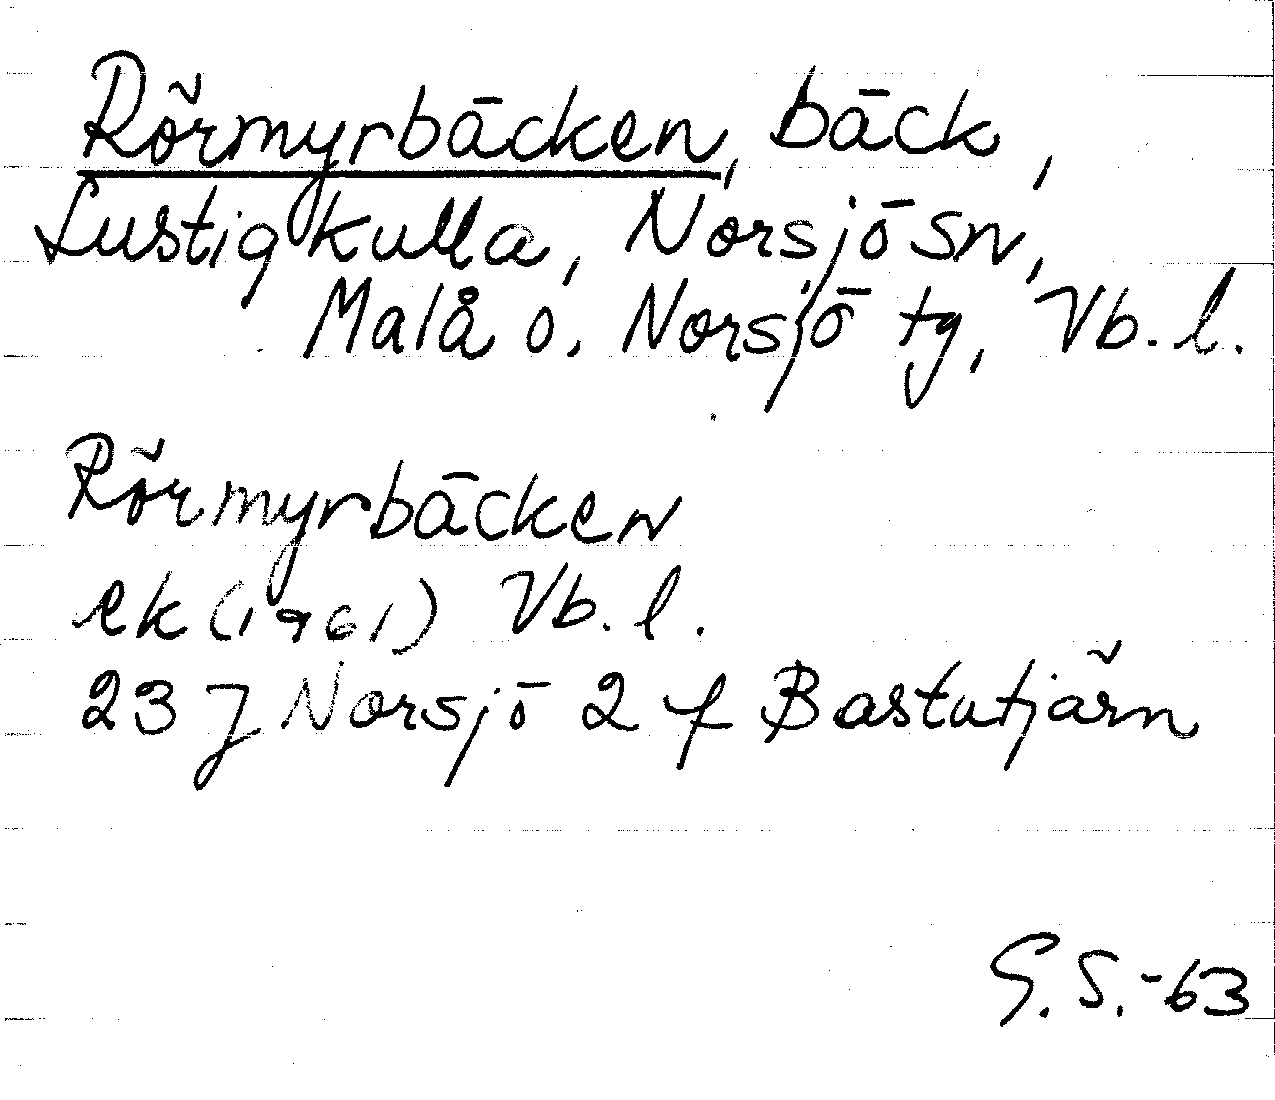 Rörmyrbäcken, bäck,
Lustigkulla, Norsjö sn,
Malå o. Norsjö tg, Vb. l.
Rörmyrbäcken
ek (1961) Vb. l.
23 J Norsjö 2 f Bastutjärn
G. S. -63